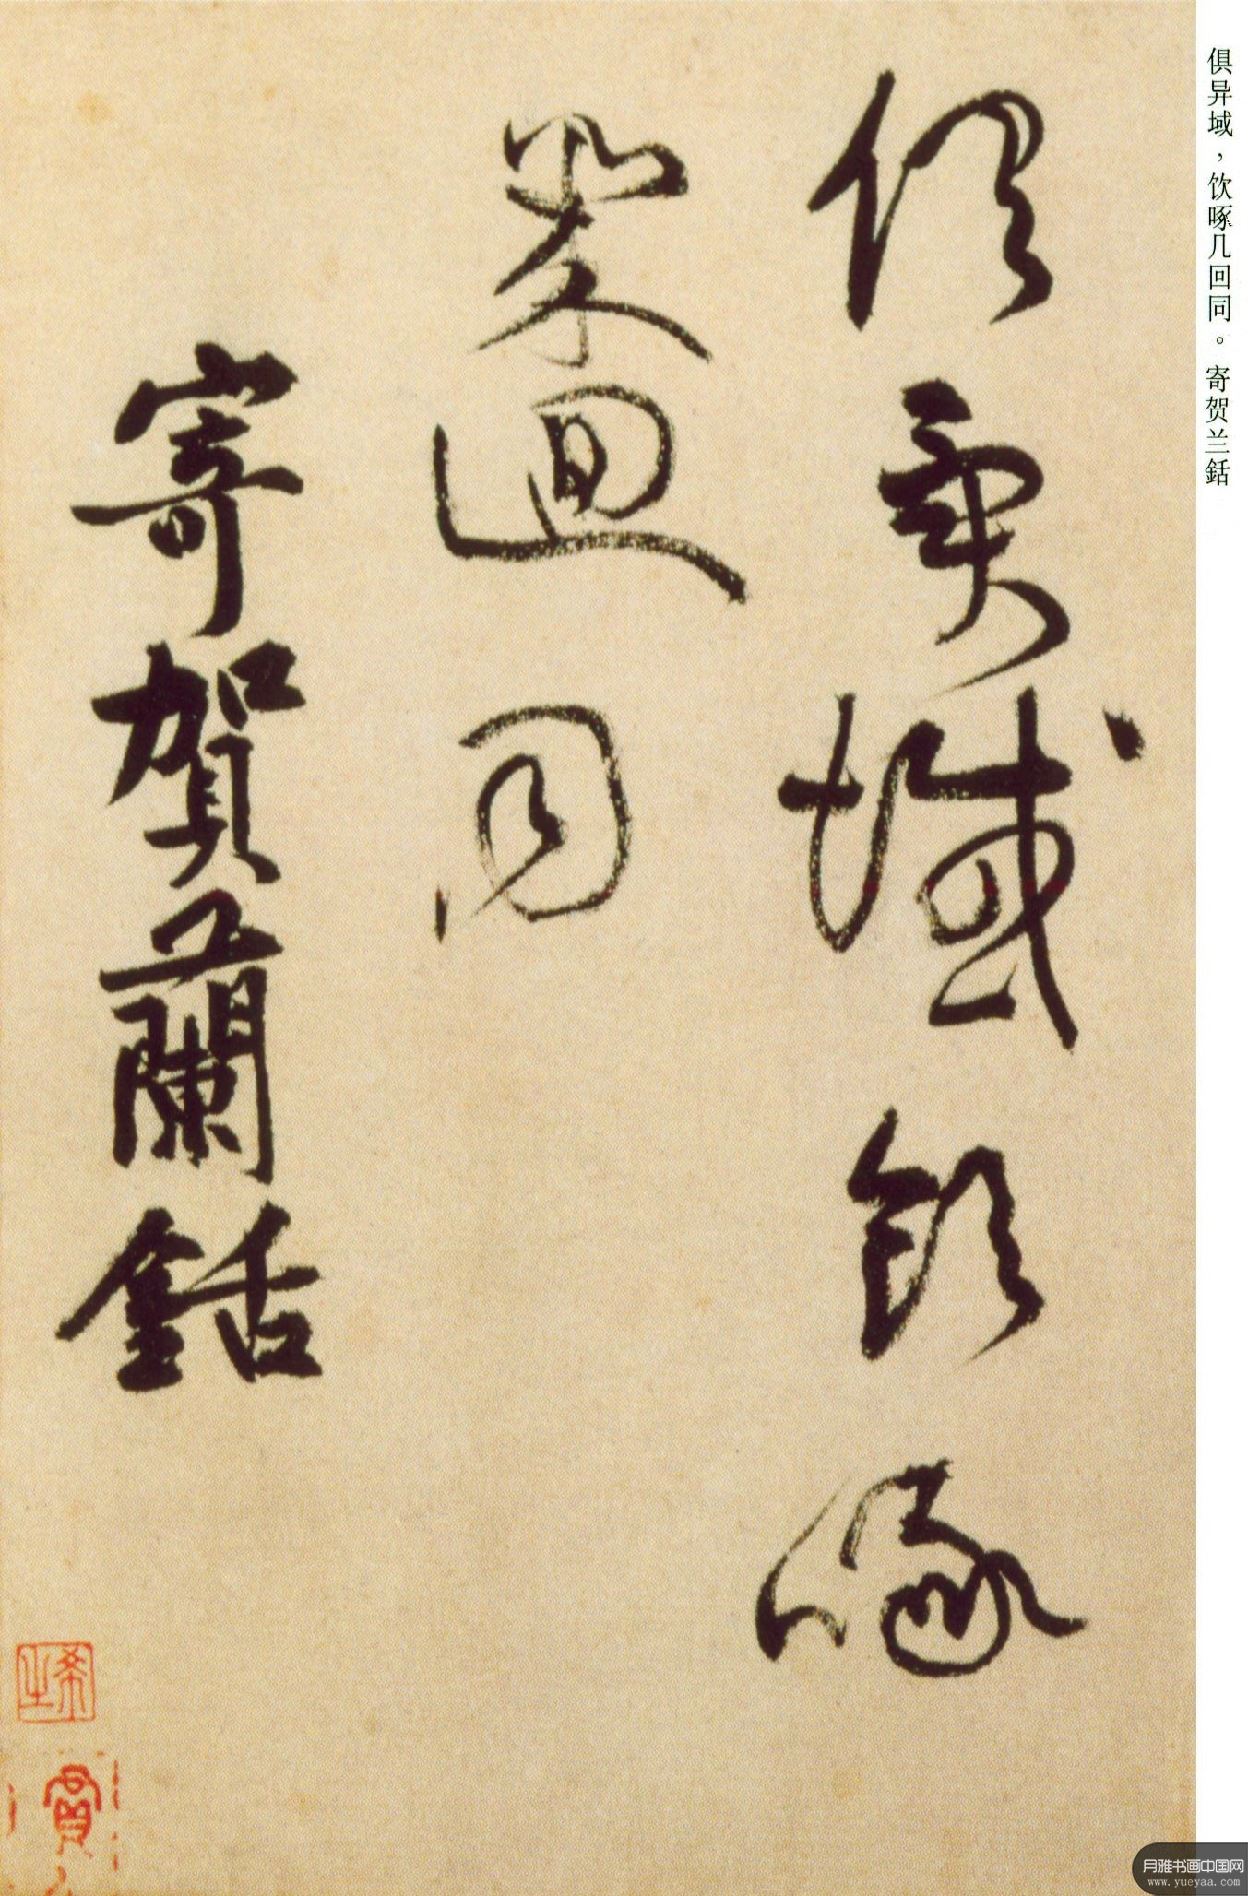 俱异域，饮啄几回同。寄贺兰銛
俱異域飲啄
幾迴同
寄賀蘭銛
希之
賞
月雅书画中国网
www.yueyaa.com